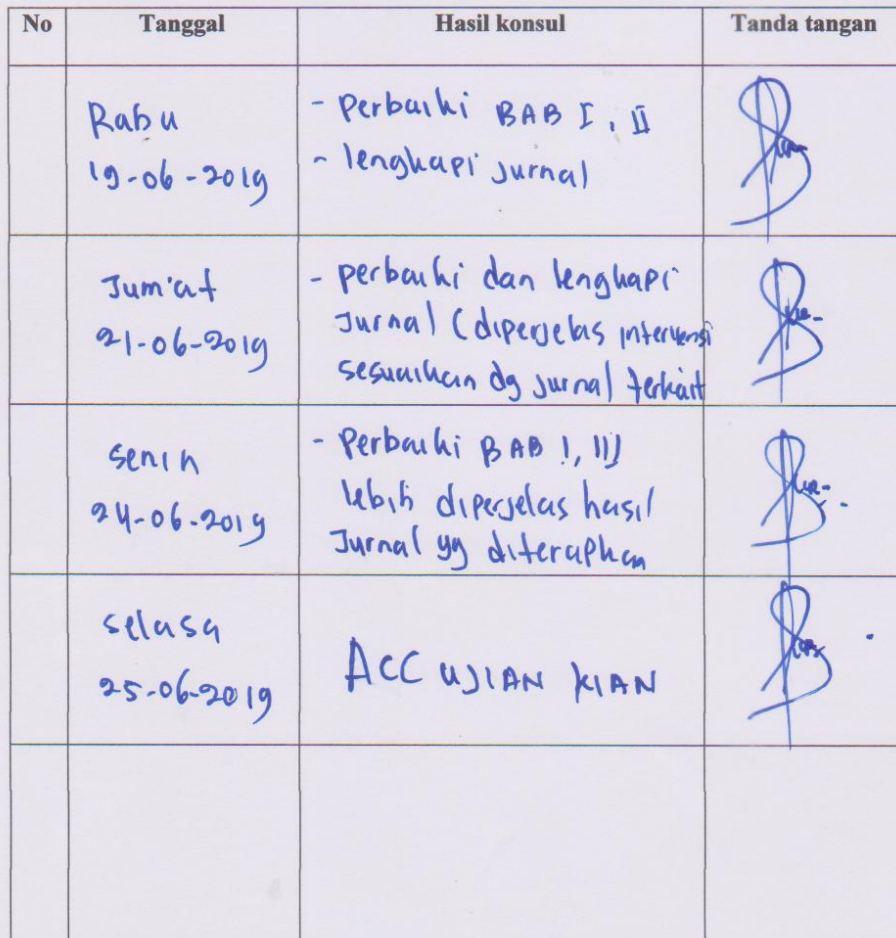 No Tanggal Hasil konsul Tanda tangan
Rabu
19-06-2019
- perbaiki BAB I, II
- lengkapi jurnal
Jum'at
21-06-2019
- perbaiki dan lengkapi
Jurnal (diperjelas intervensi
sesuaikan dg jurnal terkait
senin
24-06-2019
- perbaiki BAB I, III
lebih diperjelas hasil
Jurnal yg diterapkan
selasa
25-06-2019
ACC UJIAN KIAN